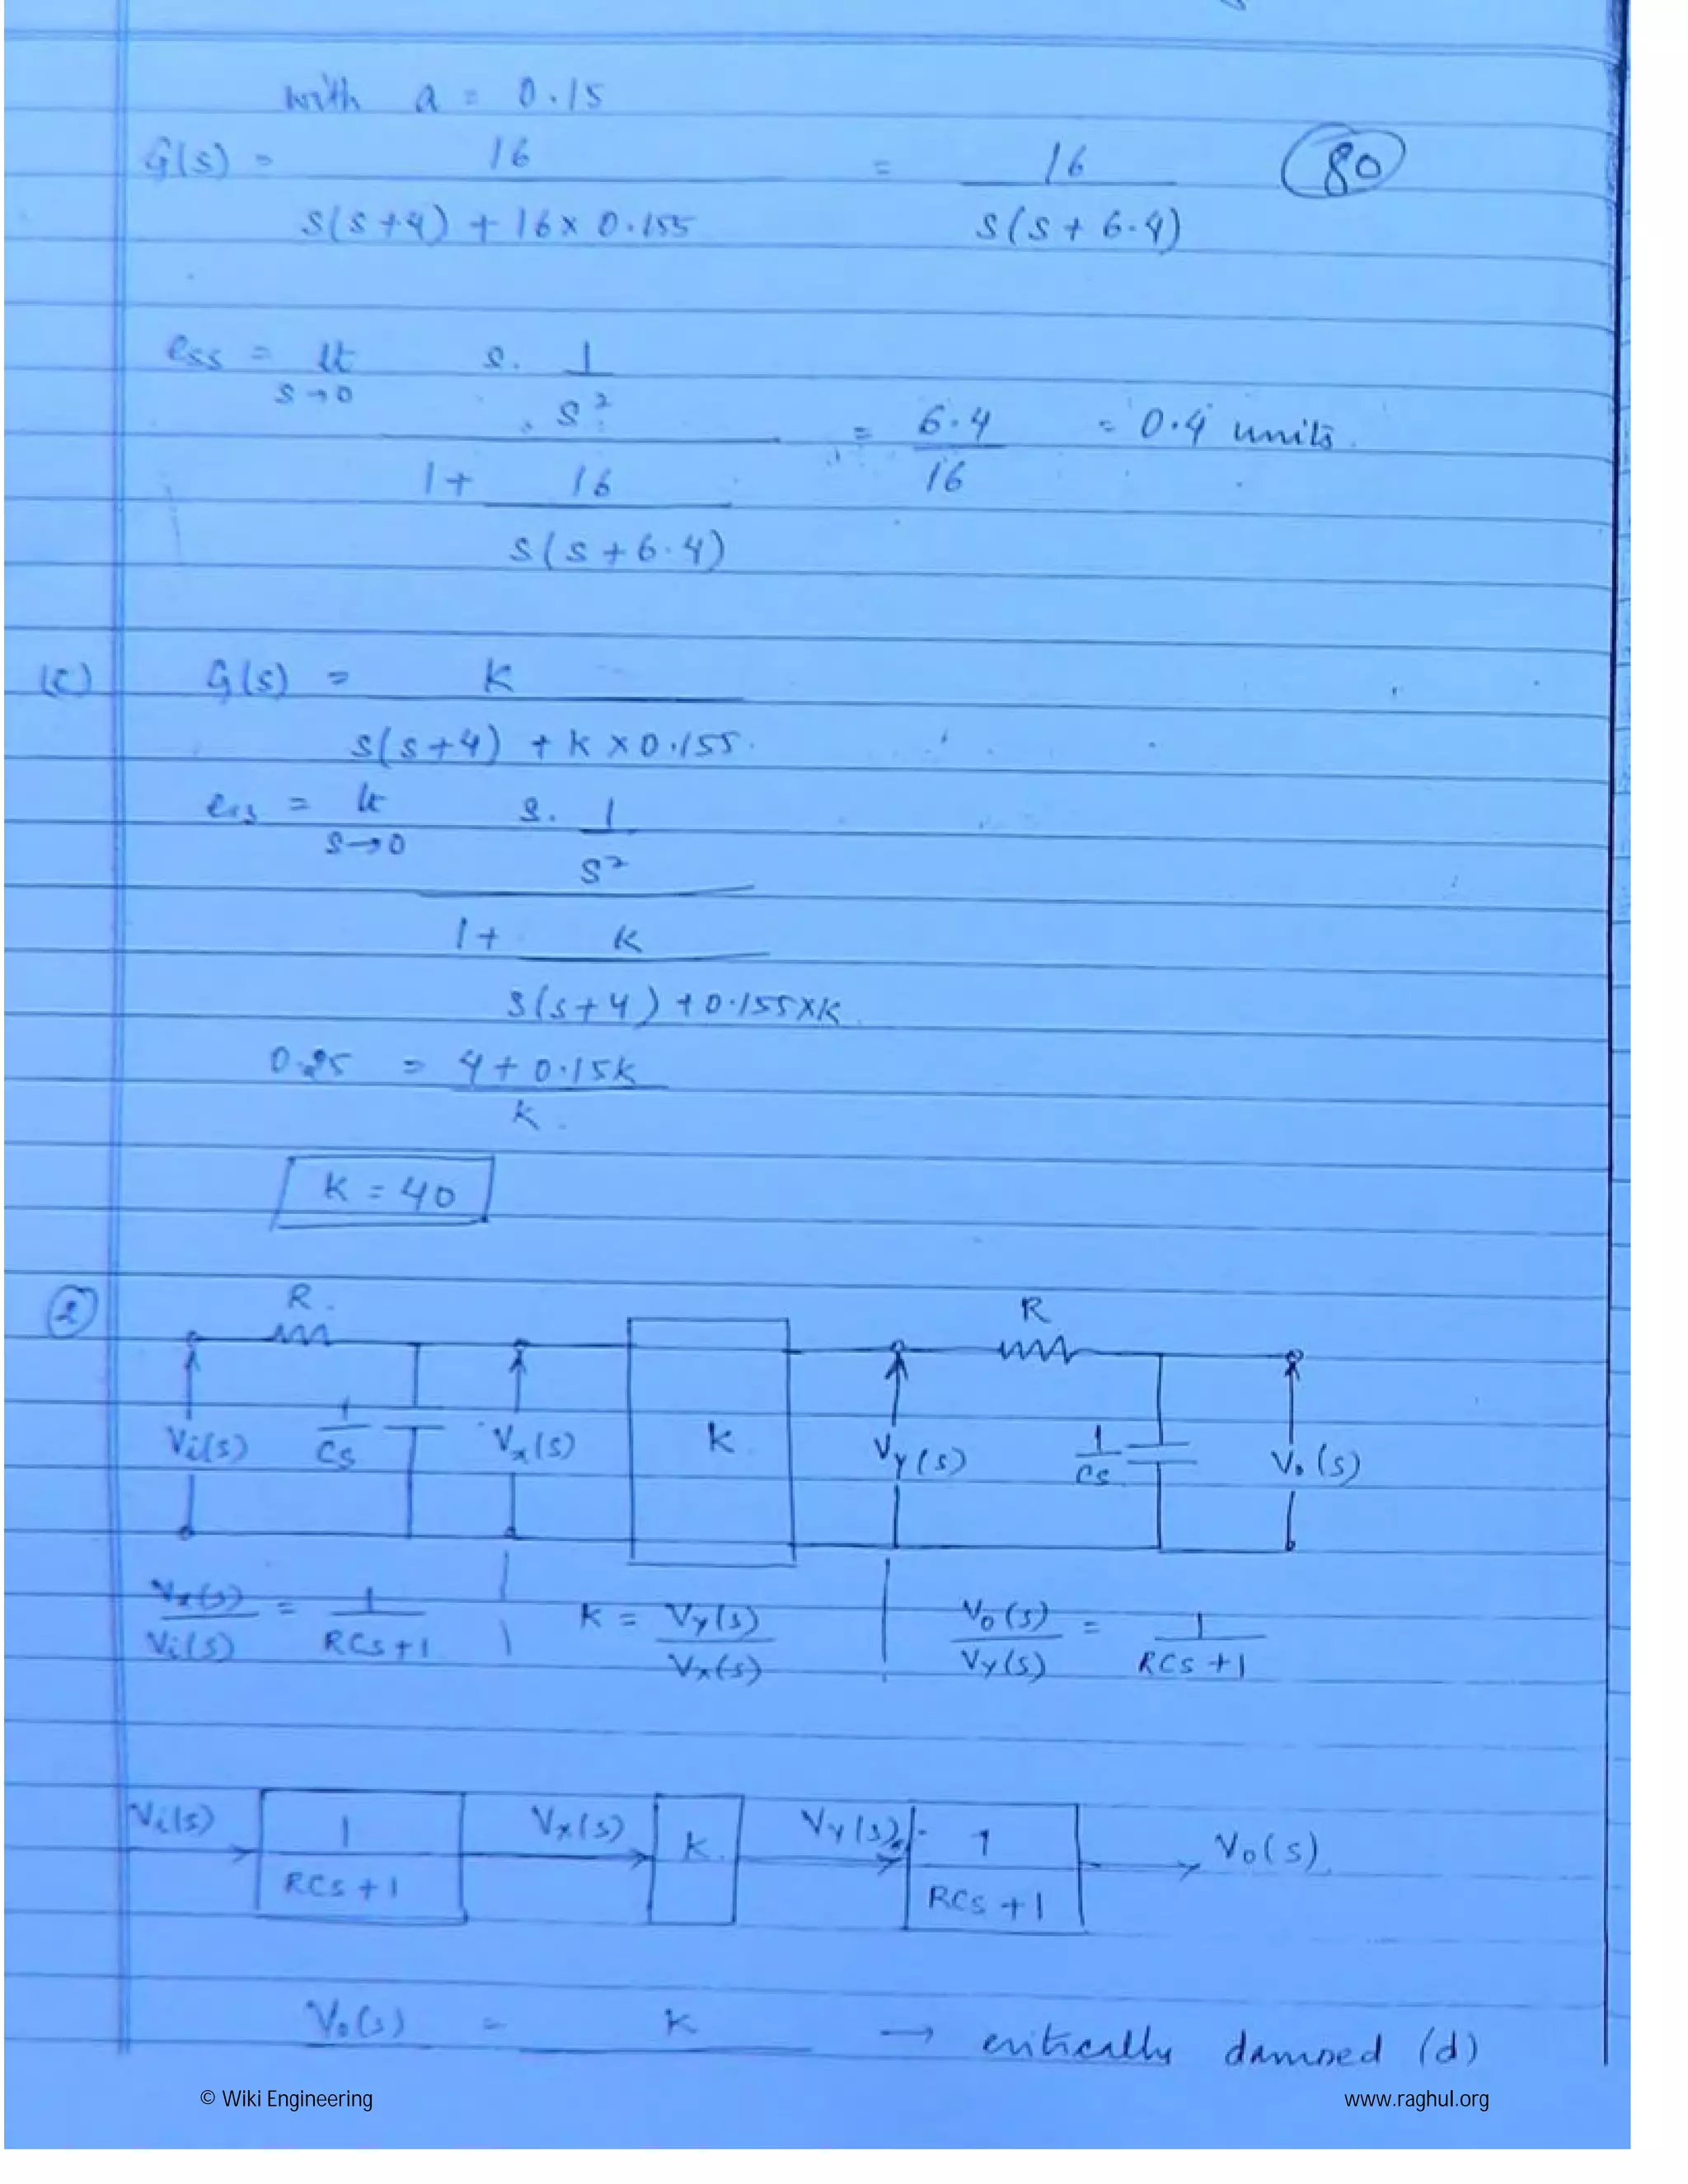 with a = 0.15
G(s) = 16 / s(s+4) + 16 x 0.155 = 16 / s(s + 6.4)
80
ess = lt s→0 s. 1/s² / 1 + 16 / s(s + 6.4) = 6.4 / 16 = 0.4 units.
(c) G(s) = K / s(s+4) + K x 0.155.
ess = lt s→0 s. 1/s² / 1 + K / s(s+4) + 0.155xK
0.25 = 4 + 0.15K / K.
K = 40
2
R. R
Vi(s) 1/Cs Vx(s) K Vy(s) 1/Cs Vo(s)
Vx(s)/Vi(s) = 1/RCs+1 K = Vy(s)/Vx(s) Vo(s)/Vy(s) = 1/RCs+1
Vi(s) 1/RCs+1 Vx(s) K Vy(s) 1/RCs+1 Vo(s)
Vo(s) = K → critically damped (d)
© Wiki Engineering www.raghul.org